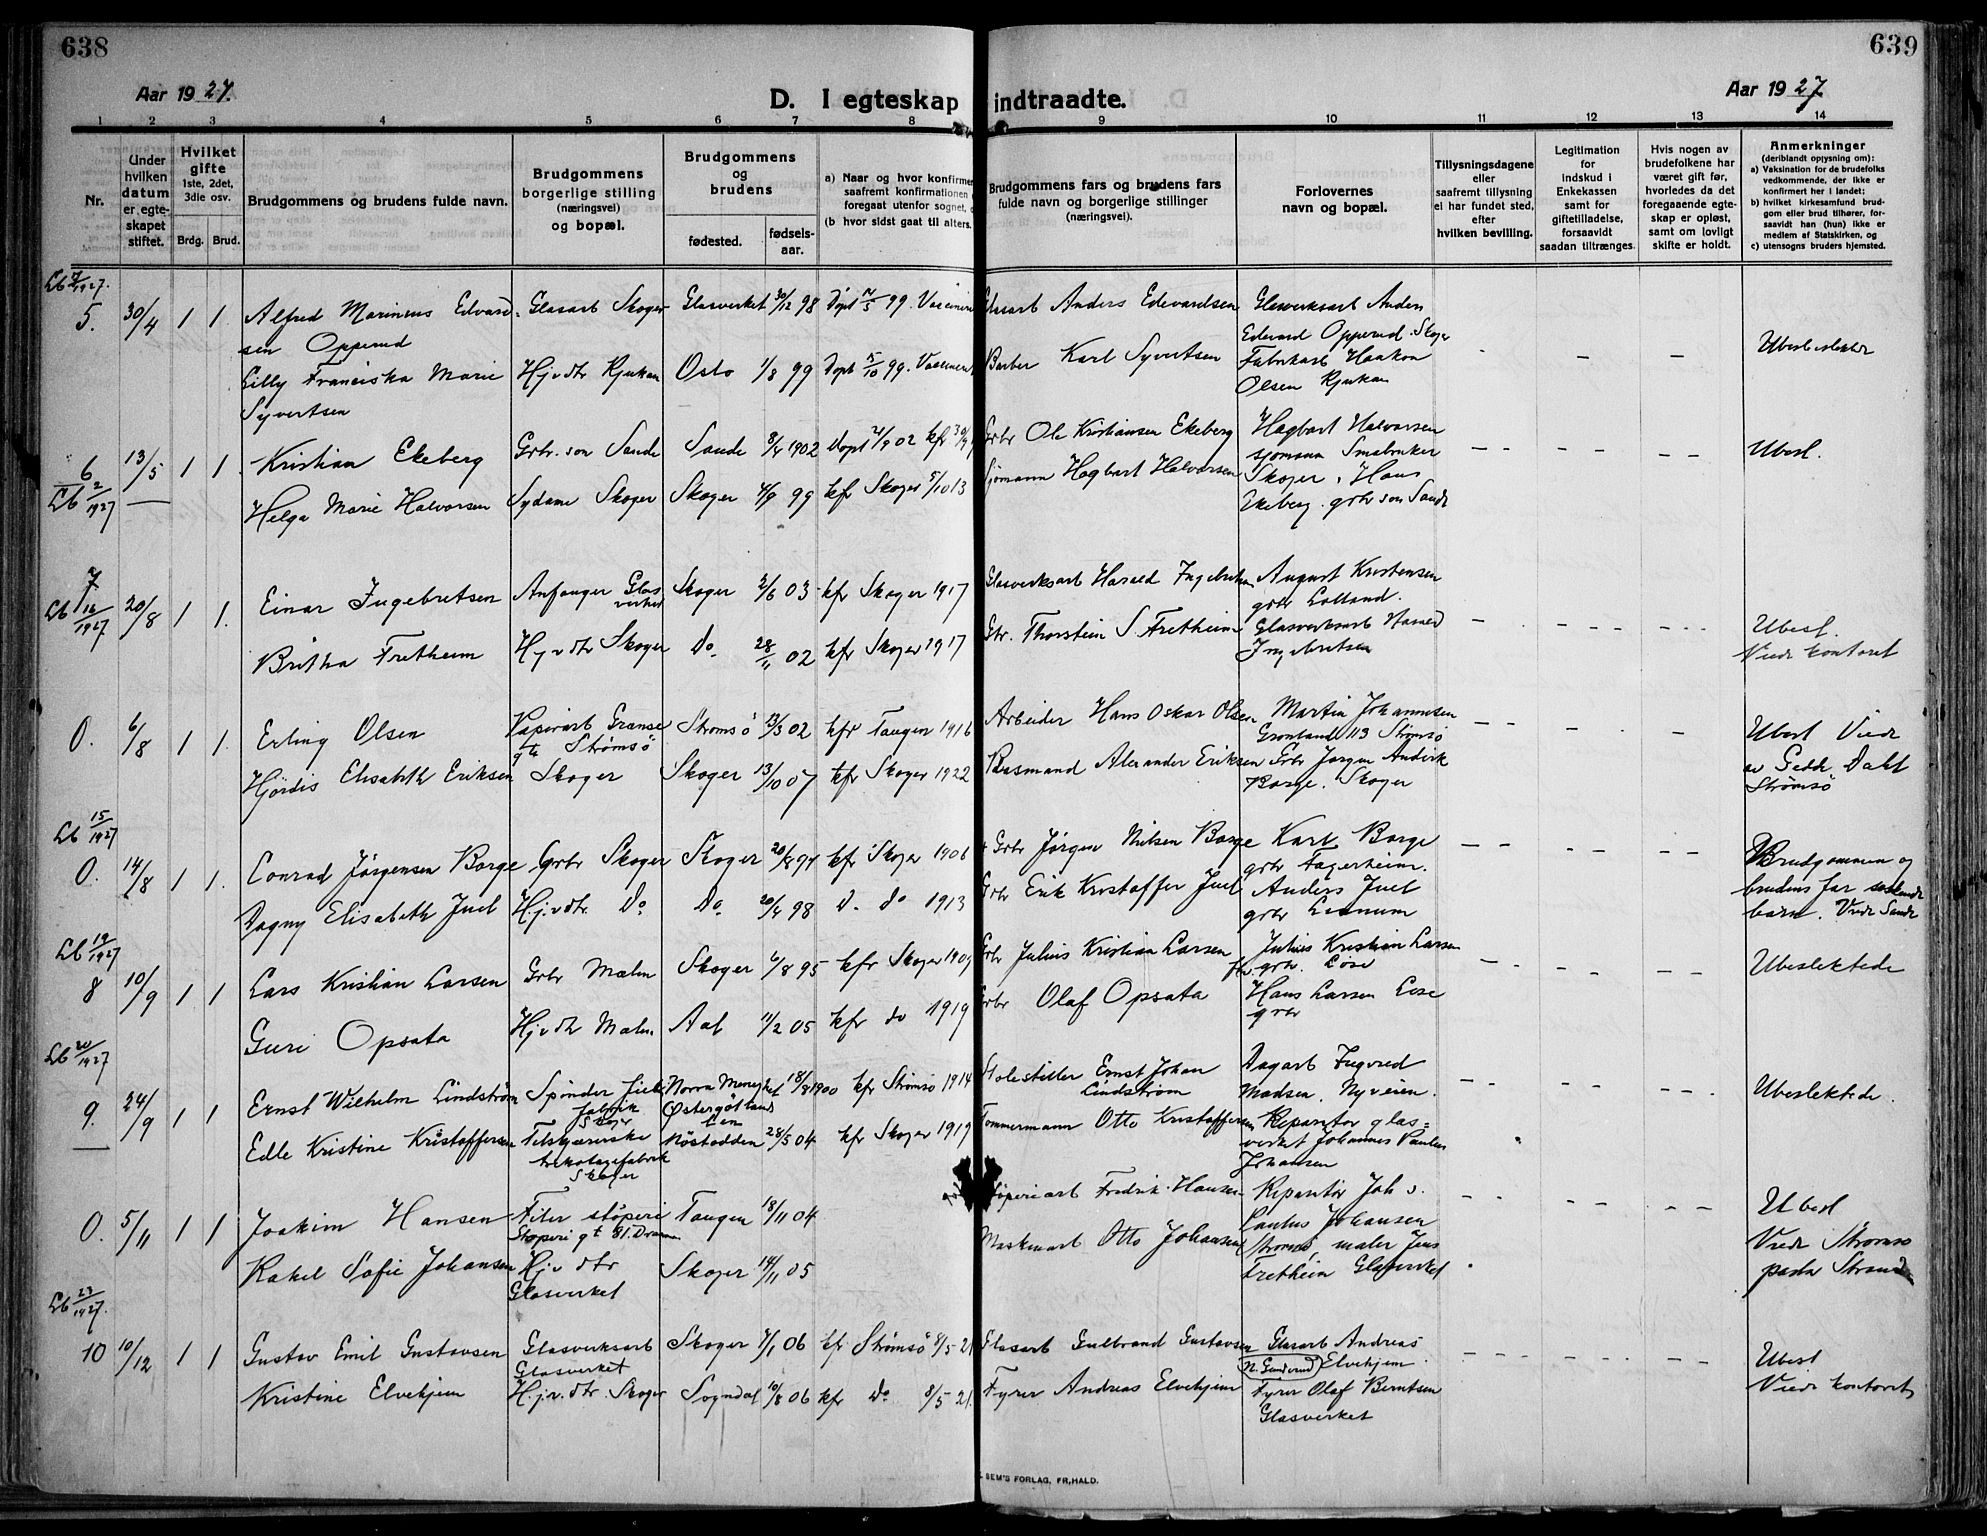 638
639
Aar 1927.
Aar 1927
D. I egteskap indtraadte.
1 2 3 4 5 6 7 8 9 10 11 12 13 14
Nr.
Under hvilken datum er egteskapet stiftet.
Hvilket gifte 1ste, 2det, 3die osv.
Brdg. Brud.
Brudgommens og brudens fulde navn.
Brudgommens borgerlige stilling (næringsvei) og bopæl.
Brudgommens og brudens
fødested.
fødselsaar.
a) Naar og hvor konfirmer
saafremt konfirmationen
foregaat utenfor sognet,
(b hvor sidst gaat til alters.
Brudgommens fars og brudens fars
fulde navn og borgerlige stillinger
(næringsvei).
Forlovernes
navn og bopæl.
Tillysningsdagene
eller
saafremt tillysning
ei har fundet sted,
efter
hvilken bevilling.
Legitimation
for
indskud i
Enkekassen
samt for
giftetilladelse,
forsaavidt
saadan tiltrænges.
Hvis nogen av
brudefolkene har
været gift før,
hvorledes da det
foregaaende egte-
skap er opløst,
samt om lovligt
skifte er holdt.
Anmerkninger
(deriblandt opysning om):
a) Vaksination for de brudefolks
vedkommende, der ikke er
konfirmert her i landet;
b) hvilket kirkesamfund brud-
gom eller brud tilhører, for-
saavidt han (hun) ikke er
medlem af Statskirken, og
c) utensogns bruders hjemsted.
5. 30/4 1 1. Alfred Marinius Edvard- Glasarb Skoger Glasverket 30/12 98 Døpt 99. Glasarb Anders Edevardsen Glasverksarb Anders
sen Opperud Edevard Opperud. Skoger
Lilly Franciska Marie Hjv dtr Rjukan Oslo 1/8 99 Døpt 15/10 99. Barber Karl Syvertsen Fabrikarb Haakon Ubeslektede
Syvertsen Olsen Rjukan
6 13/5 1 1 Kristian Ekeberg Grbr. søn Sande Sande 8/4 1902 Døpt 21/9 02 kfr Grbr Ole Kristiansen Ekeberg Hagbart Halvorsen Ubesl.
sjømann Småbruker
Lb 2/1927 Helga Marie Halvorsen Sydame Skoger Skoger 4/9 99 kfr Skoger 5/10 13 Sjømann Hagbart Halvorsen Skoger, Hans
Ekeberg. grbr søn Sande
7 20/8 1 1. Einar Ingebretsen Anfanger Glasverket Skoger 2/6 03 kfr Skoger 1917 Glasverksarb Harald Ingebretsen August Kristensen
Lb 16/1927 grbr Lolland.
Britha Fretheim Hjv dtr Skoger Do 28/11 02 kfr Skoger 1917 Gbr. Thorstein S. Fretheim Glasverksarb Harald Ubesl.
Ingebretsen Viede kontoret
0. 6/8 1 1. Erling Olsen Papirarb Grænse Strømsø 13/3 02 kfr Tangen 1916 Arbeider Hans Oskar Olsen Martin Johannesen Ubesl Viede
gt Strømsø Grønland 113 Strømsø av Gedde Dahl
Hjørdis Elisabeth Eriksen Skoger Skoger 13/10 07 kfr Skoger 1922 Basmand Alexander Eriksen Grbr Jørgen Andrik Strømsø
Borge. Skoger
Lb 15/1927
0. 14/8 1 1. Conrad Jørgensen Borge Grbr Skoger Skoger kfr Skoger 1906 Grbr Jørgen Nilsen Borge Karl Borge Brudgommen og
grbr Fagerheim. brudens far søskende
Dagny Elisabeth Juel Hjv dtr. Do Do 20/4 98 D. do 1913 Grbr Erik Kristoffer Juel Anders Juel barn. Viede Sande
grbr
Lb 19/1927
8 10/9 1 1 Lars Kristian Larsen Grbr Mælen Skoger 6/8 95 kfr Skoger 1909 Grbr Julius Kristian Larsen Julius Kristian Larsen Ubeslektede
grbr. Løse
Guri Opsata Hjv dtr Mælen Aal 11/2 05 kfr do 1919 Grbr Olaf Opsata Hans Larsen Løse
grbr
Lb 20/1927
9. 24/9 1 1 Ernst Wilhelm Lindstrøm Spinder Norra 18/8 1900 kfr Strømsø 1914 Stolestiller Ernst Johan Dagarb Ingvard Ubeslektede.
fabrik Østergøtlands Lindstrøm Madsen. Nyveien.
Skoger Len
Edle Kristine Kristoffersen Tilskjærerske Nøstodden 28/5 04 kfr Skoger 1919 Tømmermann Otto Kristoffersen Reparatør glas-
trikotagefabrik verket Johannes Paulus
Skoger Johansen
0. 5/11 1 1 Joakim Hansen Filer støperi Tangen 18/11 04 Støperiarb Fredrik Hansen Reparatør Joh s. Ubesl
Støperi gt 81. Drammen Paulus Johansen Viede Strømsø
Rakel Sofie Johansen Hjv dtr Skoger 14/11 05 Maskinarb Otto Johansen Strømsø, maler Jens
Glasverket Fretheim Glasverket
Lb 23/1927.
10 10/12 1 1 Gustav Emil Gustavsen Glasverksarb Skoger 7/1 06 kfr Strømsø 8/5 21 Glasarb Gulbrand Gustavsen Glasarb Andreas Ubesl
Glasverket N. Gunderud Elvehjem. Viede kontoret
Kristine Elvehjem Hjv. dtr. Skoger Sogndal 10/8 06 kfr Do 8/5 21. Fyrer Andreas Elvehjem Fyrer Olaf Berntsen
Glasverket
SEM'S FORLAG, FR.HALD.